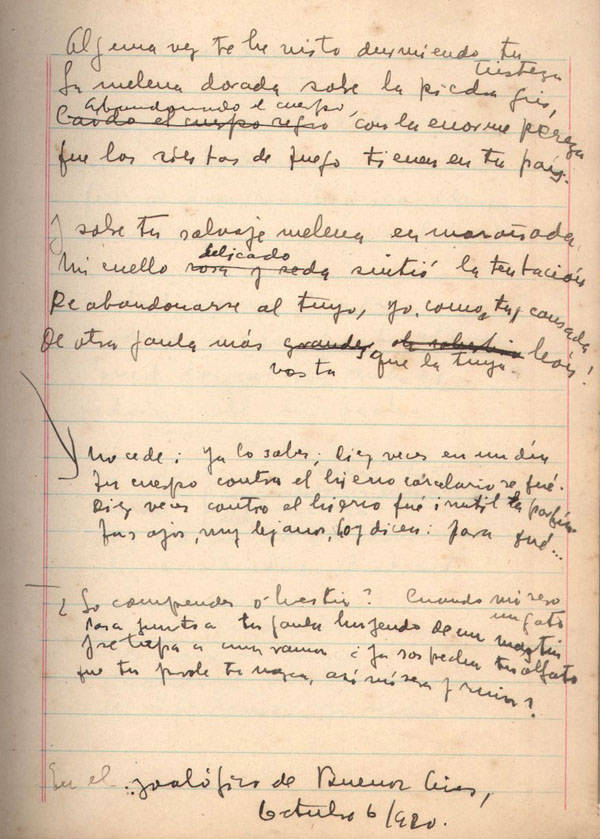 Alguna vez te he visto durmiendo tu
tristeza
La melena dorada sobre la piedra gris,
Abandonado el cuerpo,
Caído el cuerpo regio con la enorme pereza
que los siestas de fuego tienen en tu país.
Y sobre tu salvaje melena enmarañada
delicado
Mi cuello rosa y seda sintió la tentación
De abandonarse al tuyo, yo, como tu, cansada
De otra jaula más grande, león!
vasta que la tuya.
No cede; ya lo sabes; Diez veces en un día
Tu cuerpo contra el hierro carcelario se fué.
Diez veces contra el hierro fué inutil la porfía
Tus ojos, muy lejanos, hoy dicen: para qué...
¿Lo comprendes ó bestia? Cuando mísero
un gato
Pasa junto a tu jaula huyendo de un mastín
Y se trepa a una rama ¿Ya sospecha tu olfato
que tu prole te nazca, así mísera y ruin?
En el zoológico de Buenos Aires,
Octubre 6/920.